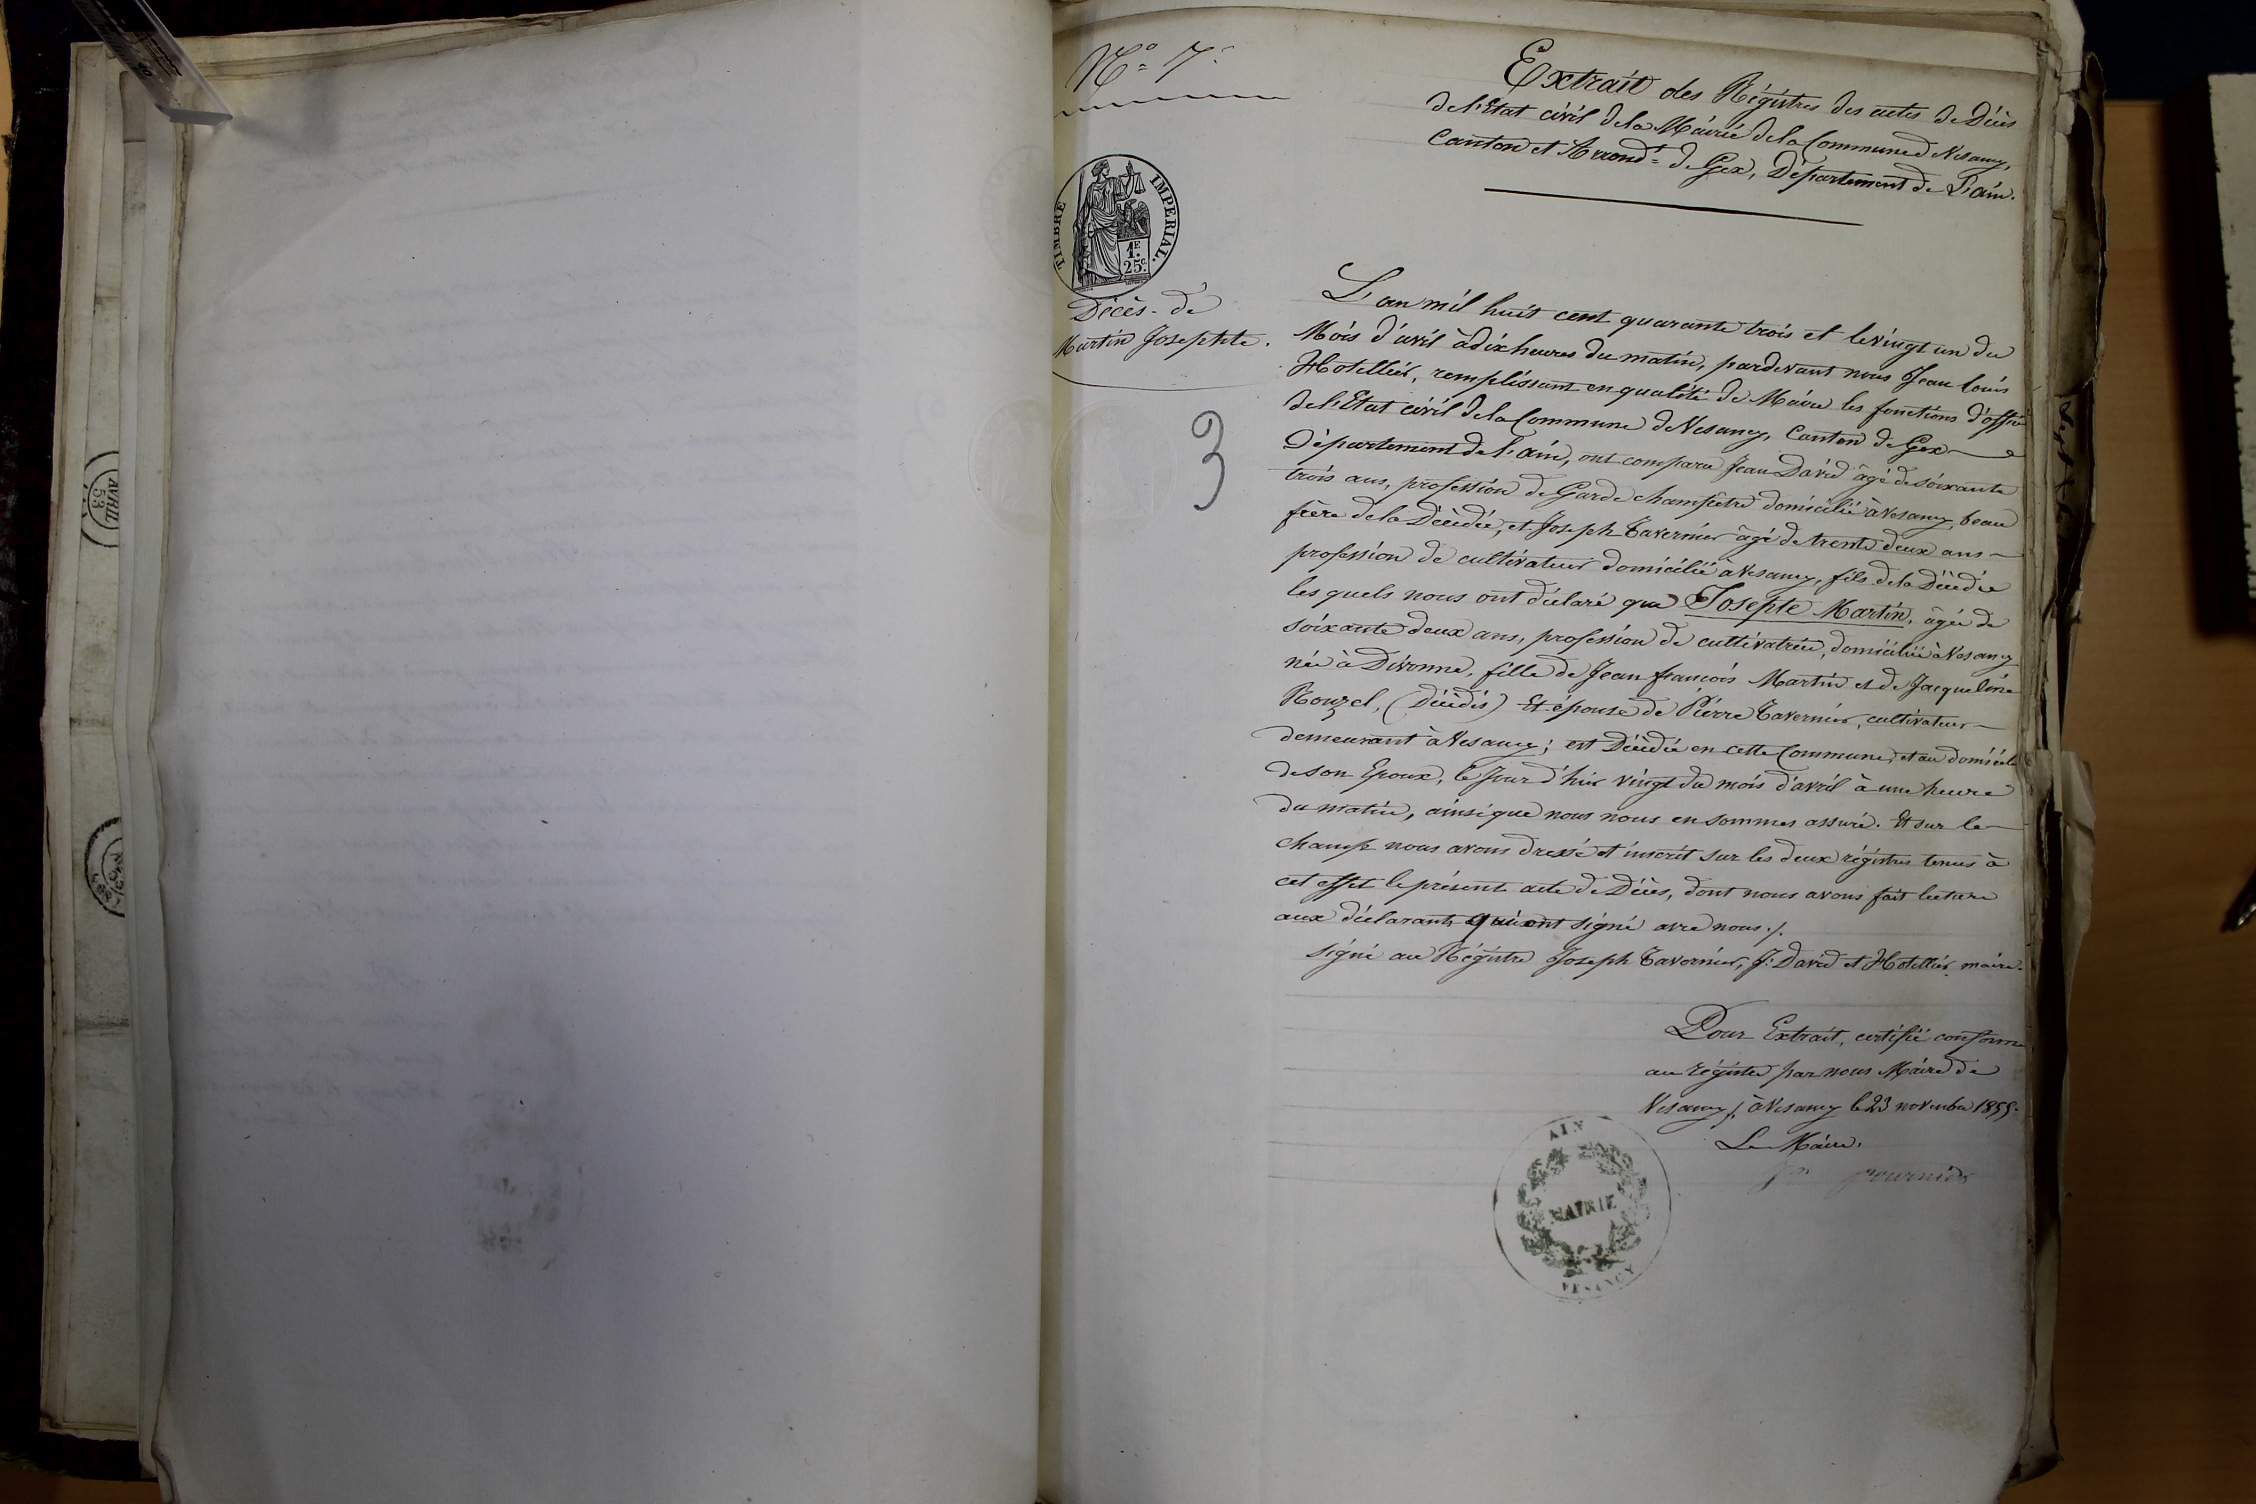 N.o 7.
Extrait des Régistres des actes de Décès
de l'Etat civil de la Mairie de la Commune d Vesancy,
Canton et Arrond.t de Gex, Département de L'ain.
TIMBRE IMPERIAL.
1.F
25.c
Décès de
Martin Josephte.
3
L'an mil huit cent quarante trois et le vingt un du
Mois d'avril à dix heures du matin, pardevant nous Jean Louis
Hotellier, remplissant en qualité de Maire les fonctions d'officier
de l'Etat civil de la Commune de Vesancy, Canton de Gex
Département de l'ain, ont comparu Jean David âgé de soixante
trois ans, profession de Garde champêtre domicilié à Vesancy, beau
frère de la Décédée, et Joseph Tavernier âgé de trente deux ans
profession de cultivateur domicilié à Vesancy, fils de la Décédée
les quels nous ont déclaré que Josephte Martin, âgée de
soixante deux ans, profession de cultivatrice, domiciliée à Vesancy
née à Divonne, fille de Jean françois Martin et de Jacqueline
Rouzel, (Décédés) Et épouse de Pierre Tavernier, cultivateur
demeurant à Vesancy; est Décédée en cette Commune, et au domicile
de son Epoux, le Jour d'hier vingt du mois d'avril à une heure
du matin, ainsi que nous nous en sommes assuré. Et sur le
champ nous avons dressé et inscrit sur les deux régistres tenus à
cet effet le présent acte de Décès, dont nous avons fait lecture
aux déclarants qui ont signé avec nous ./.
signé au Régistre Joseph Tavernier, J. David et Hotellier maire.
Pour Extrait, certifié conforme
au régistre par nous Maire de
Vesancy ./. à Vesancy le 23 novembre 1855.
Le Maire.
fournier
AIN
MAIRIE
VESANCY
AVRIL
53